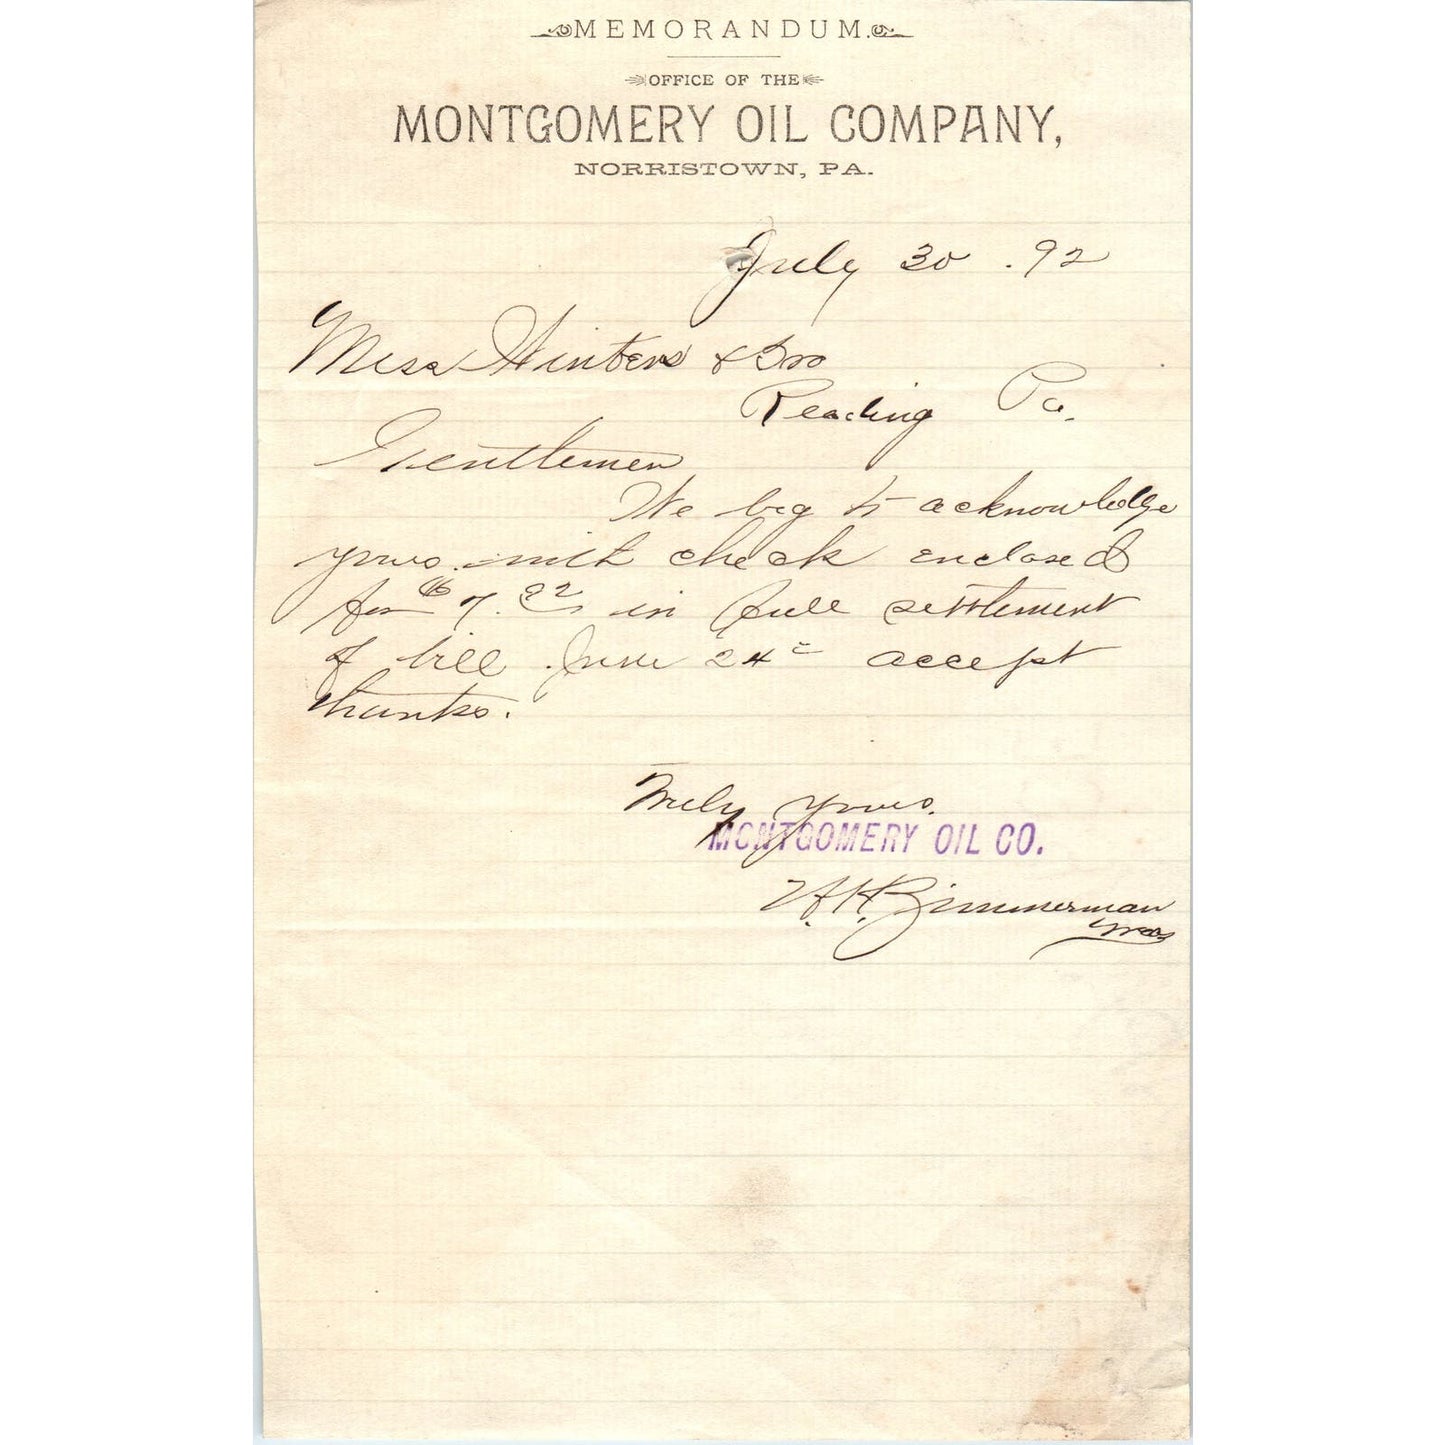 MEMORANDUM.
OFFICE OF THE
MONTGOMERY OIL COMPANY,
NORRISTOWN, PA.
July 30 . 92
Mess Winters & Bro
Reading Pa.
Gentlemen
We beg to acknowledge
yours with check enclosed
for $7.92 in full settlement
of bill June 24 accept
thanks.
Truly yours.
MONTGOMERY OIL CO.
W. H. Zimmerman
Treas